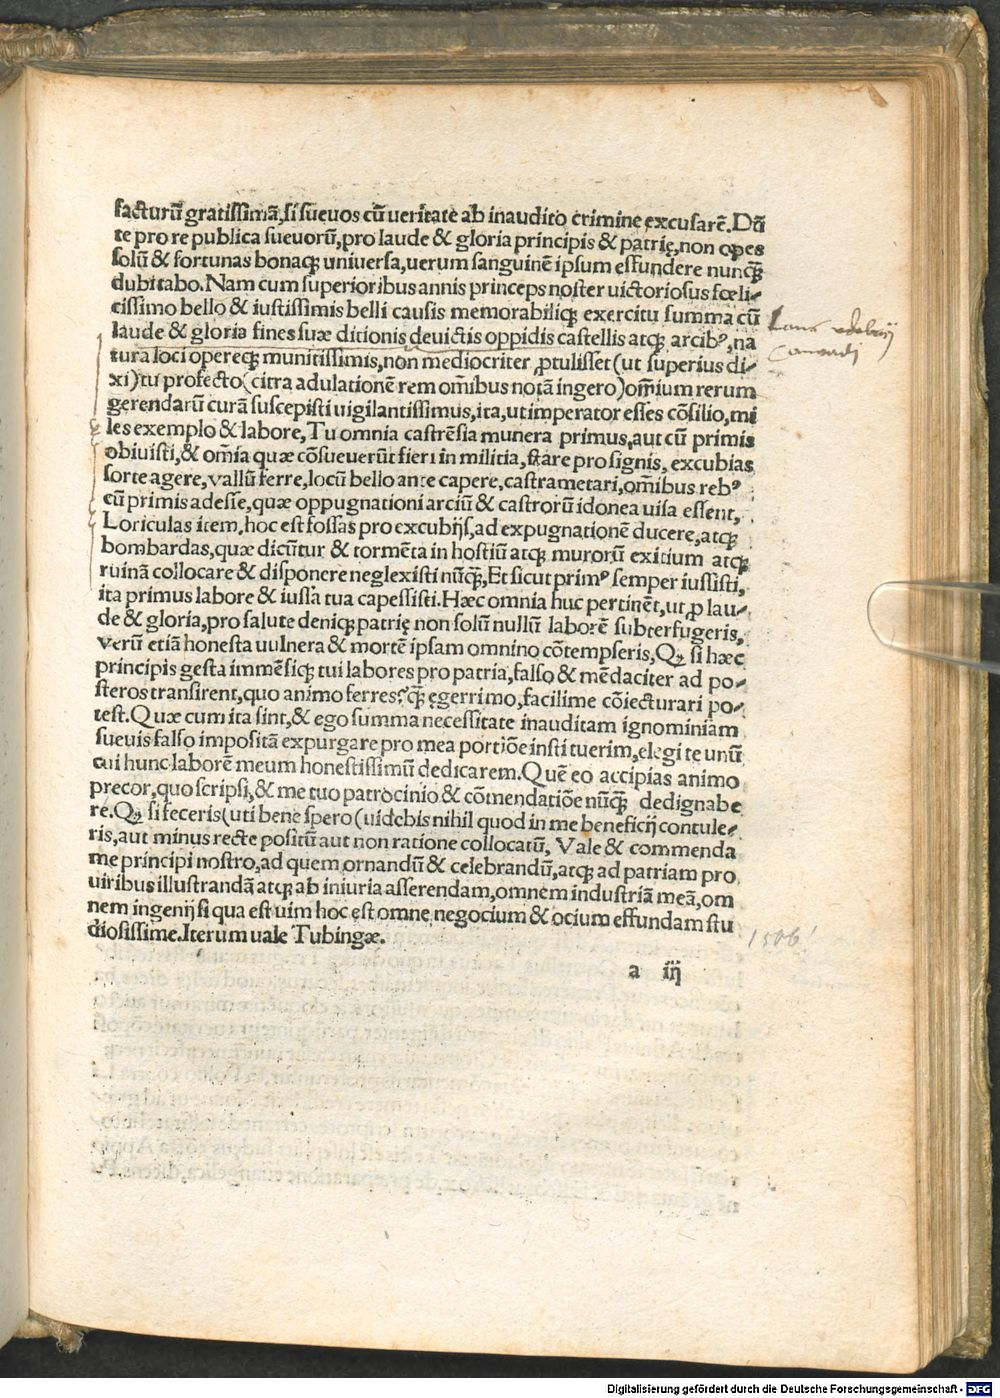 facturũ gratissimã, si sueuos cũ ueritate ab inaudito crimine excusarẽ. Dũ
te pro re publica sueuorũ, pro laude & gloria principis & patrię, non opes
solũ & fortunas bonaqꝫ uniuersa, uerum sanguinẽ ipsum effundere nunqꝫ̃
dubitabo. Nam cum superioribus annis princeps noster uictoriosus fœli⸗
cissimo bello & iustissimis belli causis memorabiliqꝫ exercitu summa cũ
laude & gloria fines suæ ditionis deuictis oppidis castellis atqꝫ arcibꝰ, na
tura loci opereqꝫ munitissimis, non mediocriter ꝓtulisset (ut superius di⸗
xi) tu profecto (citra adulationẽ rem om̃ibus notã ingero) om̃ium rerum
gerendarũ curã suscepisti uigilantissimus, ita, ut imperator esses cõsilio, mi
les exemplo & labore, Tu omnia castrẽsia munera primus, aut cũ primis
obiuisti, & om̃ia quæ cõsueuerũt fieri in militia, stare pro signis, excubias
sorte agere, vallũ ferre, locũ bello ante capere, castrametari, om̃ibus rebꝰ
cũ primis adesse, quæ oppugnationi arciũ & castrorũ idonea uisa essent,
Loriculas item, hoc est fossas pro excubijs, ad expugnationẽ ducere, atqꝫ
bombardas, quæ dicũtur & tormẽta in hostiũ atqꝫ murorũ exitium atqꝫ
ruinã collocare & disponere neglexisti nũqꝫ̃, Et sicut primꝰ semper iussisti,
ita primus labore & iussa tua capessisti. Hæc omnia huc pertinẽt, ut ꝓ lau⸗
de & gloria, pro salute deniqꝫ patrię non solũ nullũ laborẽ subterfugeris,
verũ etiã honesta uulnera & mortẽ ipsam omnino cõtempseris, Qꝫ si hæc
principis gesta immẽsiqꝫ tui labores pro patria, falso & mẽdaciter ad po⸗
steros transirent, quo animo ferres? qꝫ̃ ęgerrimo, facilime cõiecturari po⸗
test. Quæ cum ita sint, & ego summa necessitate inauditam ignominiam
sueuis falso impositã expurgare pro mea portiõe instituerim, elegi te unũ
cui hunc laborẽ meum honestissimũ dedicarem. Quẽ eo accipias animo
precor, quo scripsi, & me tuo patrocinio & cõmendatiõe nũqꝫ̃ dedignabe
re. Qꝫ si feceris (uti bene spero (uidebis nihil quod in me beneficij contule⸗
ris, aut minus recte positũ aut non ratione collocatũ, Vale & commenda
me principi nostro, ad quem ornandũ & celebrandũ, atqꝫ ad patriam pro
uiribus illustrandã atqꝫ ab iniuria asserendam, omnem industriã meã, om
nem ingenij si qua est uim hoc est omne negocium & ocium effundam stu
diosissime. Iterum uale Tubingæ.
1506
a iij
Laus
Conradi
Digitalisierung gefördert durch die Deutsche Forschungsgemeinschaft - DFG